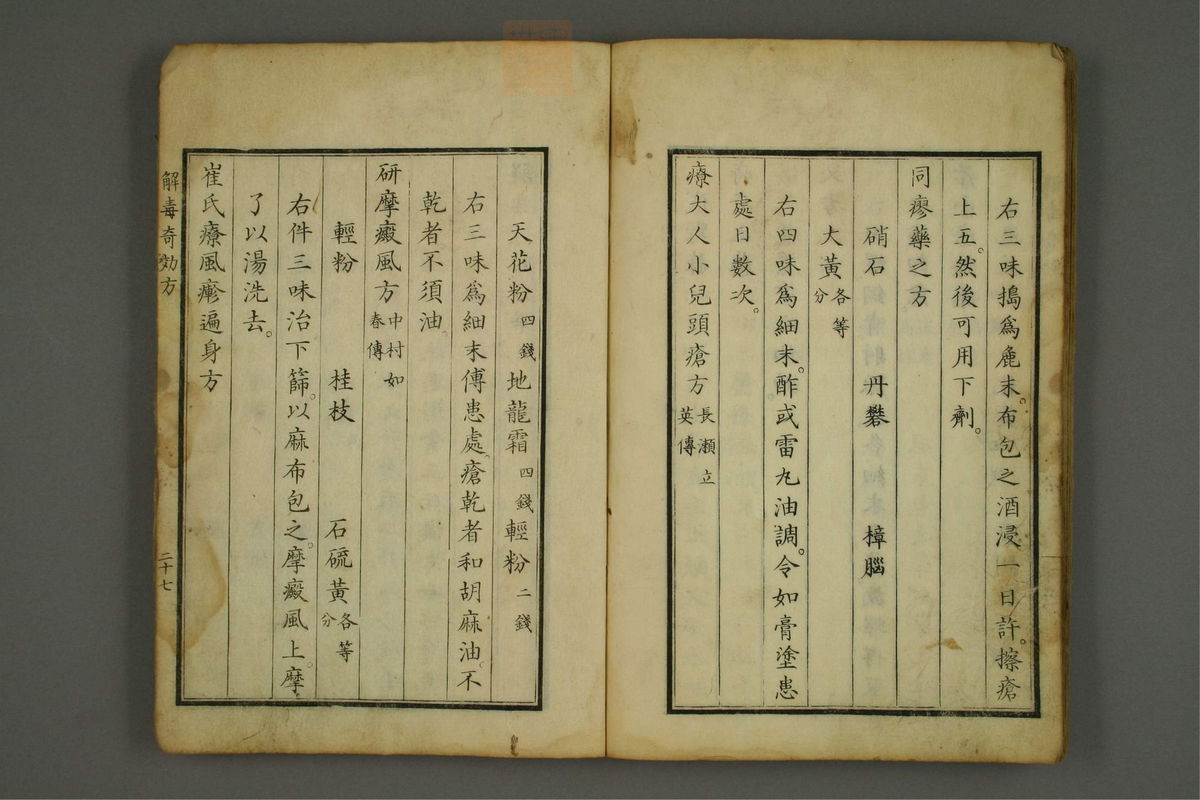 右三味搗爲麁末。布包之酒浸一日許。擦瘡
上五。然後可用下劑。
同瘳藥之方
硝石 丹礬 樟腦
大黃各等分
右四味爲細末。酢或雷丸油調。令如膏塗患
處日數次。
療大人小兒頭瘡方長瀬立英傳
天花粉四錢 地龍霜四錢 輕粉二錢
右三味爲細末傅患處。瘡乾者和胡麻油。不
乾者不須油。
研摩癜風方中村如春傳
輕粉 桂枝 石硫黃各等分
右件三味治下篩。以麻布包之。摩癜風上。摩
了以湯洗去。
崔氏療風瘮遍身方
解毒奇効方
二十七